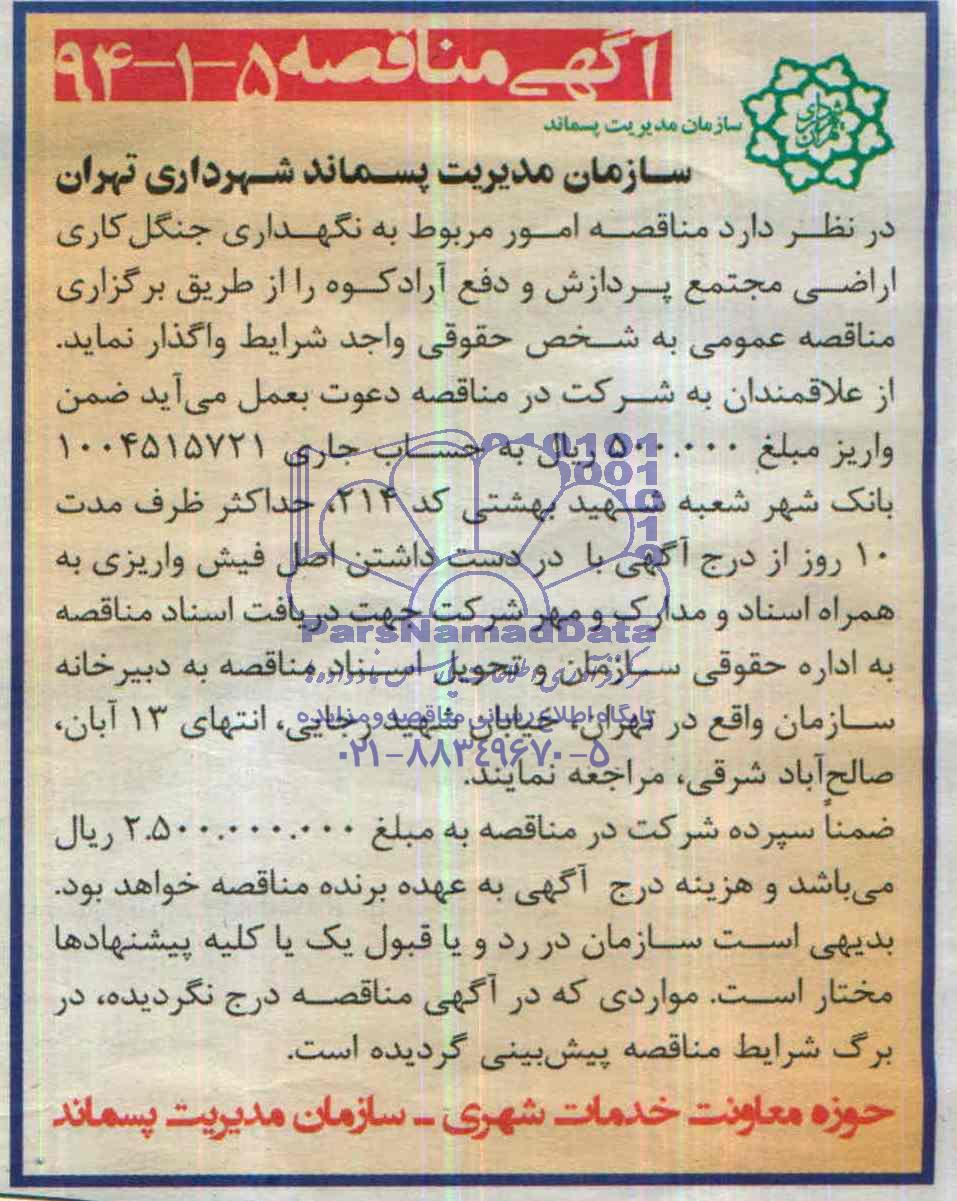 آگهی مناقصه ۵-۱-۹۴
شهرداری تهران
سازمان مدیریت پسماند
سازمان مدیریت پسماند شهرداری تهران
در نظر دارد مناقصه امور مربوط به نگهداری جنگل‌کاری
اراضی مجتمع پردازش و دفع آرادکوه را از طریق برگزاری
مناقصه عمومی به شخص حقوقی واجد شرایط واگذار نماید.
از علاقمندان به شرکت در مناقصه دعوت بعمل می‌آید ضمن
واریز مبلغ ۵۰۰.۰۰۰ ریال به حساب جاری ۱۰۰۴۵۱۵۷۲۱
بانک شهر شعبه شهید بهشتی کد ۲۱۴، حداکثر ظرف مدت
۱۰ روز از درج آگهی با در دست داشتن اصل فیش واریزی به
همراه اسناد و مدارک و مهر شرکت جهت دریافت اسناد مناقصه
ParsNamadData
به اداره حقوقی سازمان و تحویل اسناد مناقصه به دبیرخانه
سازمان واقع در تهران، خیابان شهید رجایی، انتهای ۱۳ آبان،
پایگاه اطلاع رسانی مناقصه و مزایده
۰۲۱-۸۸۳۴۹۶۷۰-۵
صالح‌آباد شرقی، مراجعه نمایند.
ضمناً سپرده شرکت در مناقصه به مبلغ ۲.۵۰۰.۰۰۰.۰۰۰ ریال
می‌باشد و هزینه درج آگهی به عهده برنده مناقصه خواهد بود.
بدیهی است سازمان در رد و یا قبول یک یا کلیه پیشنهادها
مختار است. مواردی که در آگهی مناقصه درج نگردیده، در
برگ شرایط مناقصه پیش‌بینی گردیده است.
حوزه معاونت خدمات شهری ـ سازمان مدیریت پسماند